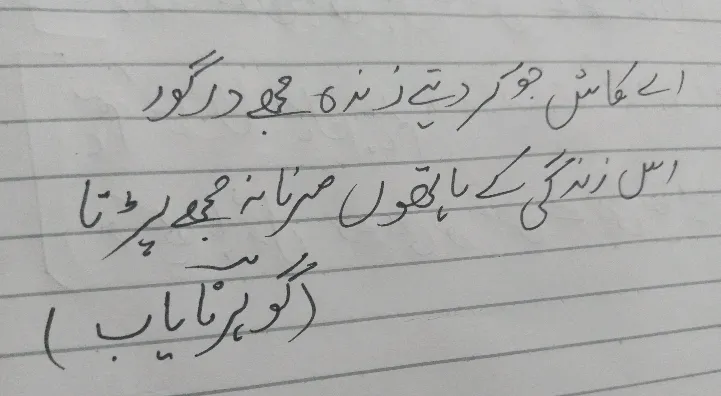 اے کاش جو کر دیتے زندہ مجھے درگور
اس زندگی کے ہاتھوں مرنا نہ مجھے پڑتا
(گوہر نایاب)